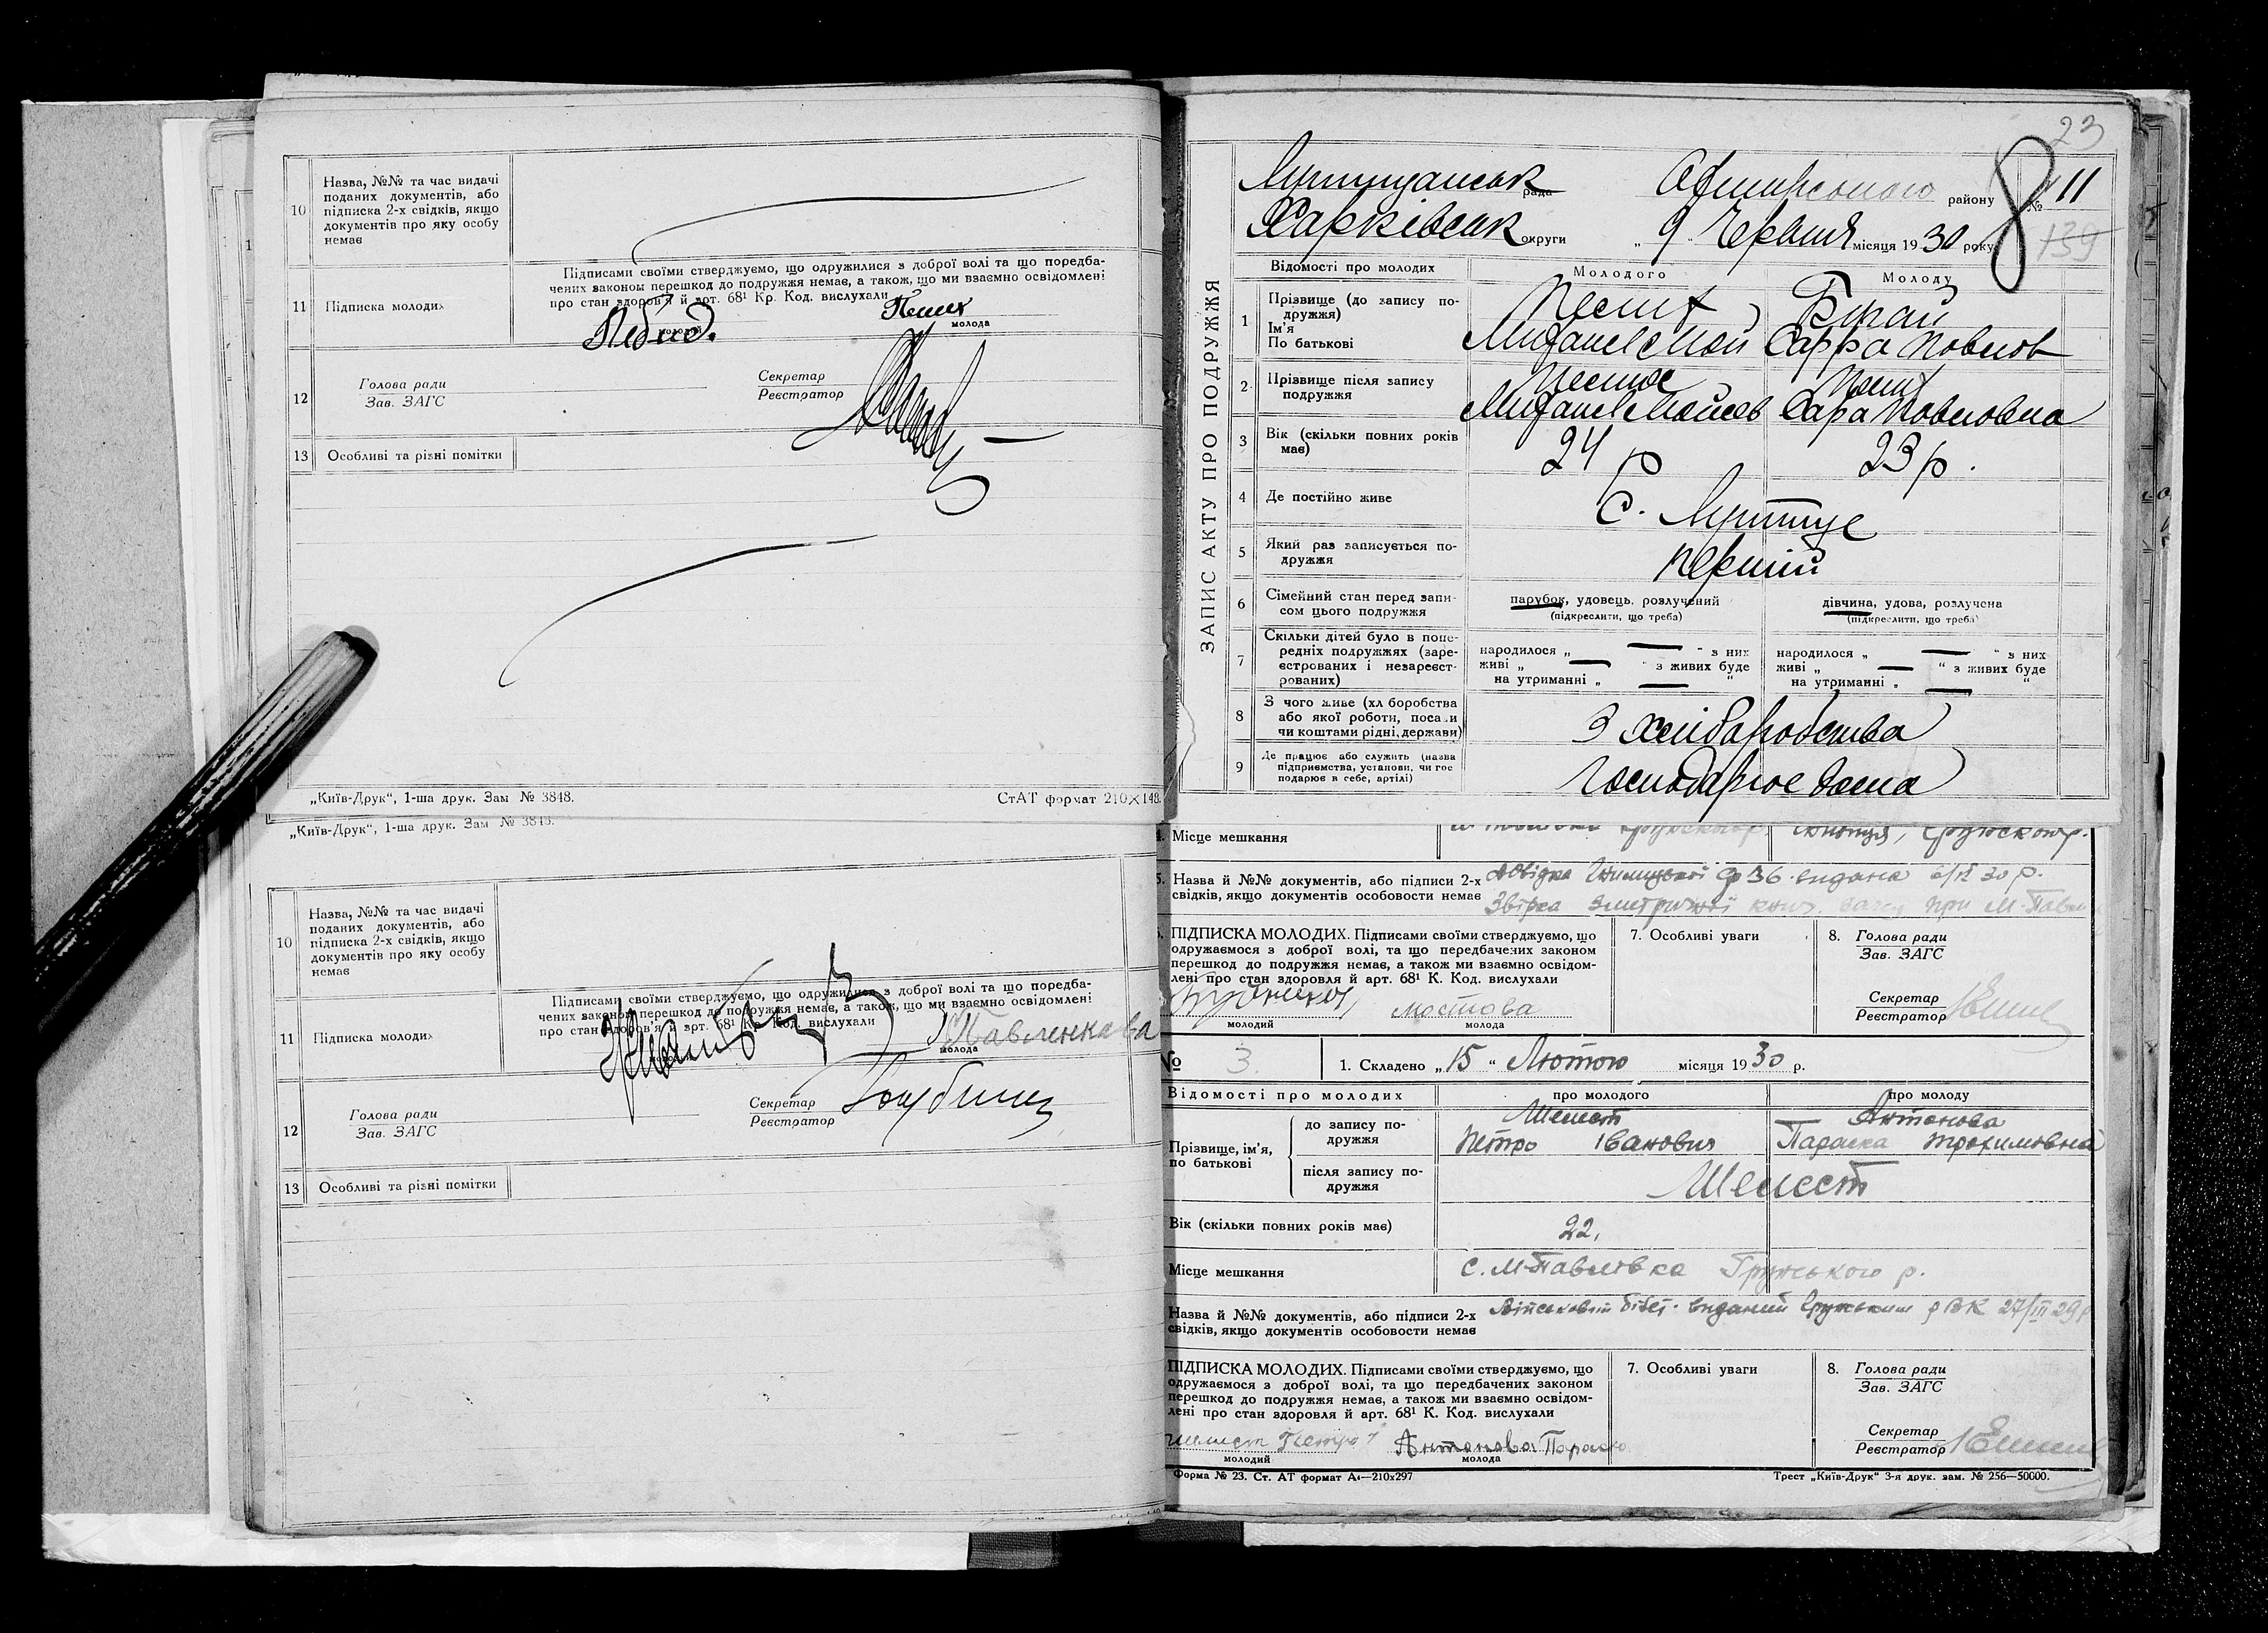 10
Назва, №№ та час видачі
поданих документів, або
підписка 2-х свідків, якщо
документів про яку особу
немає
11
Підписка молодих
Підписами своїми стверджуємо, що одружилися з доброї волі та що поредба-
чених законом перешкод до подружжя немає, а також, що ми взаємно освідомлені
про стан здоров'я й арт. 68¹ Кр. Код. вислухали
молодий
молода
12
Голова ради
Зав. ЗАГС
Секретар
Реєстратор
13 Особливі та різні помітки
„Київ-Друк“, 1-ша друк. Зам № 3848.
СтАТ формат 210×148.
„Київ-Друк“, 1-ша друк. Зам № 3848.
10
Назва, №№ та час видачі
поданих документів, або
підписка 2-х свідків, якщо
документів про яку особу
немає
11
Підписка молодих
Підписами своїми стверджуємо, що одружилися з доброї волі та що поредба-
чених законом перешкод до подружжя немає, а також, що ми взаємно освідомлені
про стан здоров'я й арт. 68¹ Кр. Код. вислухали
Павленкова
молода
12
Голова ради
Зав. ЗАГС
Секретар
Реєстратор
13 Особливі та різні помітки
23
ЗАПИС АКТУ ПРО ПОДРУЖЖЯ
рада району № 11
Харківськ округи „9“ Червня місяця 1930 року
139
8
Відомості про молодих Молодого Молоду
1
Прізвище (до запису по-
дружжя)
Ім'я
По батькові
Сарра Повлов
2
Прізвище після запису
подружжя
Сара Повловна
3
Вік (скільки повних років
має)
24 р 23 р.
4 Де постійно живе
С.
5
Який раз записується по-
дружжя
перший
6
Сімейний стан перед запи-
сом цього подружжя
парубок, удовець, розлучений
(підкреслити, що треба)
дівчина, удова, розлучена
(підкреслити, що треба)
7
Скільки дітей було в попе-
редніх подружжях (заре-
єстрованих і незареєст-
рованих)
народилося „ — “ з них
живі „ — “ з живих буде
на утриманні „ — “
народилося „ — “ з них
живі „ — “ з живих буде
на утриманні „ — “
8
З чого живе (хліборобства
або якої роботи, посади
чи коштами рідні, держави)
З хліборобства
9
Де працює або служить (назва
підприємства, установи, чи гос
подарює в себе, артілі)
Господарює дома
4. Місце мешкання
5. Назва й №№ документів, або підписи 2-х
свідків, якщо документів особовости немає
ПІДПИСКА МОЛОДИХ. Підписами своїми стверджуємо, що
одружаємося з доброї волі, та що передбачених законом
перешкод до подружжя немає, а також ми взаємно освідом-
лені про стан здоровля й арт. 68¹ К. Код. вислухали
мостова
молодий молода
7. Особливі уваги
8. Голова ради
Зав. ЗАГС
Секретар
Реєстратор
№ 3. 1. Складено „15“ Лютого місяця 1930 р.
Відомості про молодих про молодого про молоду
Прізвище, ім'я,
по батькові
до запису по-
дружжя
Шелест
Петро Іванович
Антонова
Параска Трохимовна
після запису по-
дружжя
Шелест
Вік (скільки повних років має) 22,
Місце мешкання с. М-Павлівка Грунського р.
Назва й №№ документів, або підписи 2-х
свідків, якщо документів особовости немає
Військовий білет. виданий Грунським РВК 27/III 29р
ПІДПИСКА МОЛОДИХ. Підписами своїми стверджуємо, що
одружаємося з доброї волі, та що передбачених законом
перешкод до подружжя немає, а також ми взаємно освідом-
лені про стан здоровля й арт. 68¹ К. Код. вислухали
шелест Петро Антонова Параска
молодий молода
7. Особливі уваги
8. Голова ради
Зав. ЗАГС
Секретар
Реєстратор
Форма № 23. Ст. АТ формат А₄—210х297
Трест „Київ-Друк“ 3-я друк. зам. № 256—50000.